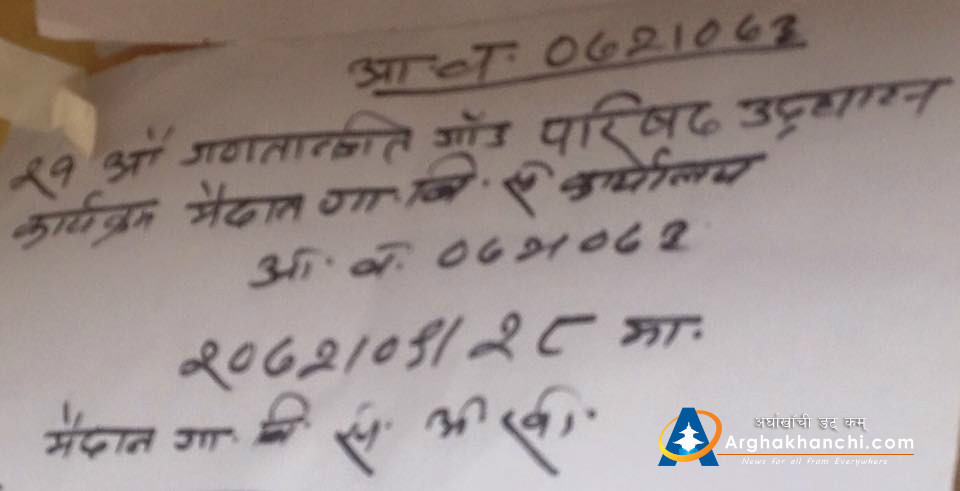 आ.ब. ०७२।०७३
२१ औं गणतान्त्रीत गाँउ परिषद उद्घाटन
कार्यक्रम मैदान गा.वि.स कार्यालय
आ. ब. ०७२।०७३
२०७२।०९।२८ मा.
मैदान गा वि स.
अर्घाखाँची डट् कम्
Arghakhanchi.com
News for all from Everywhere